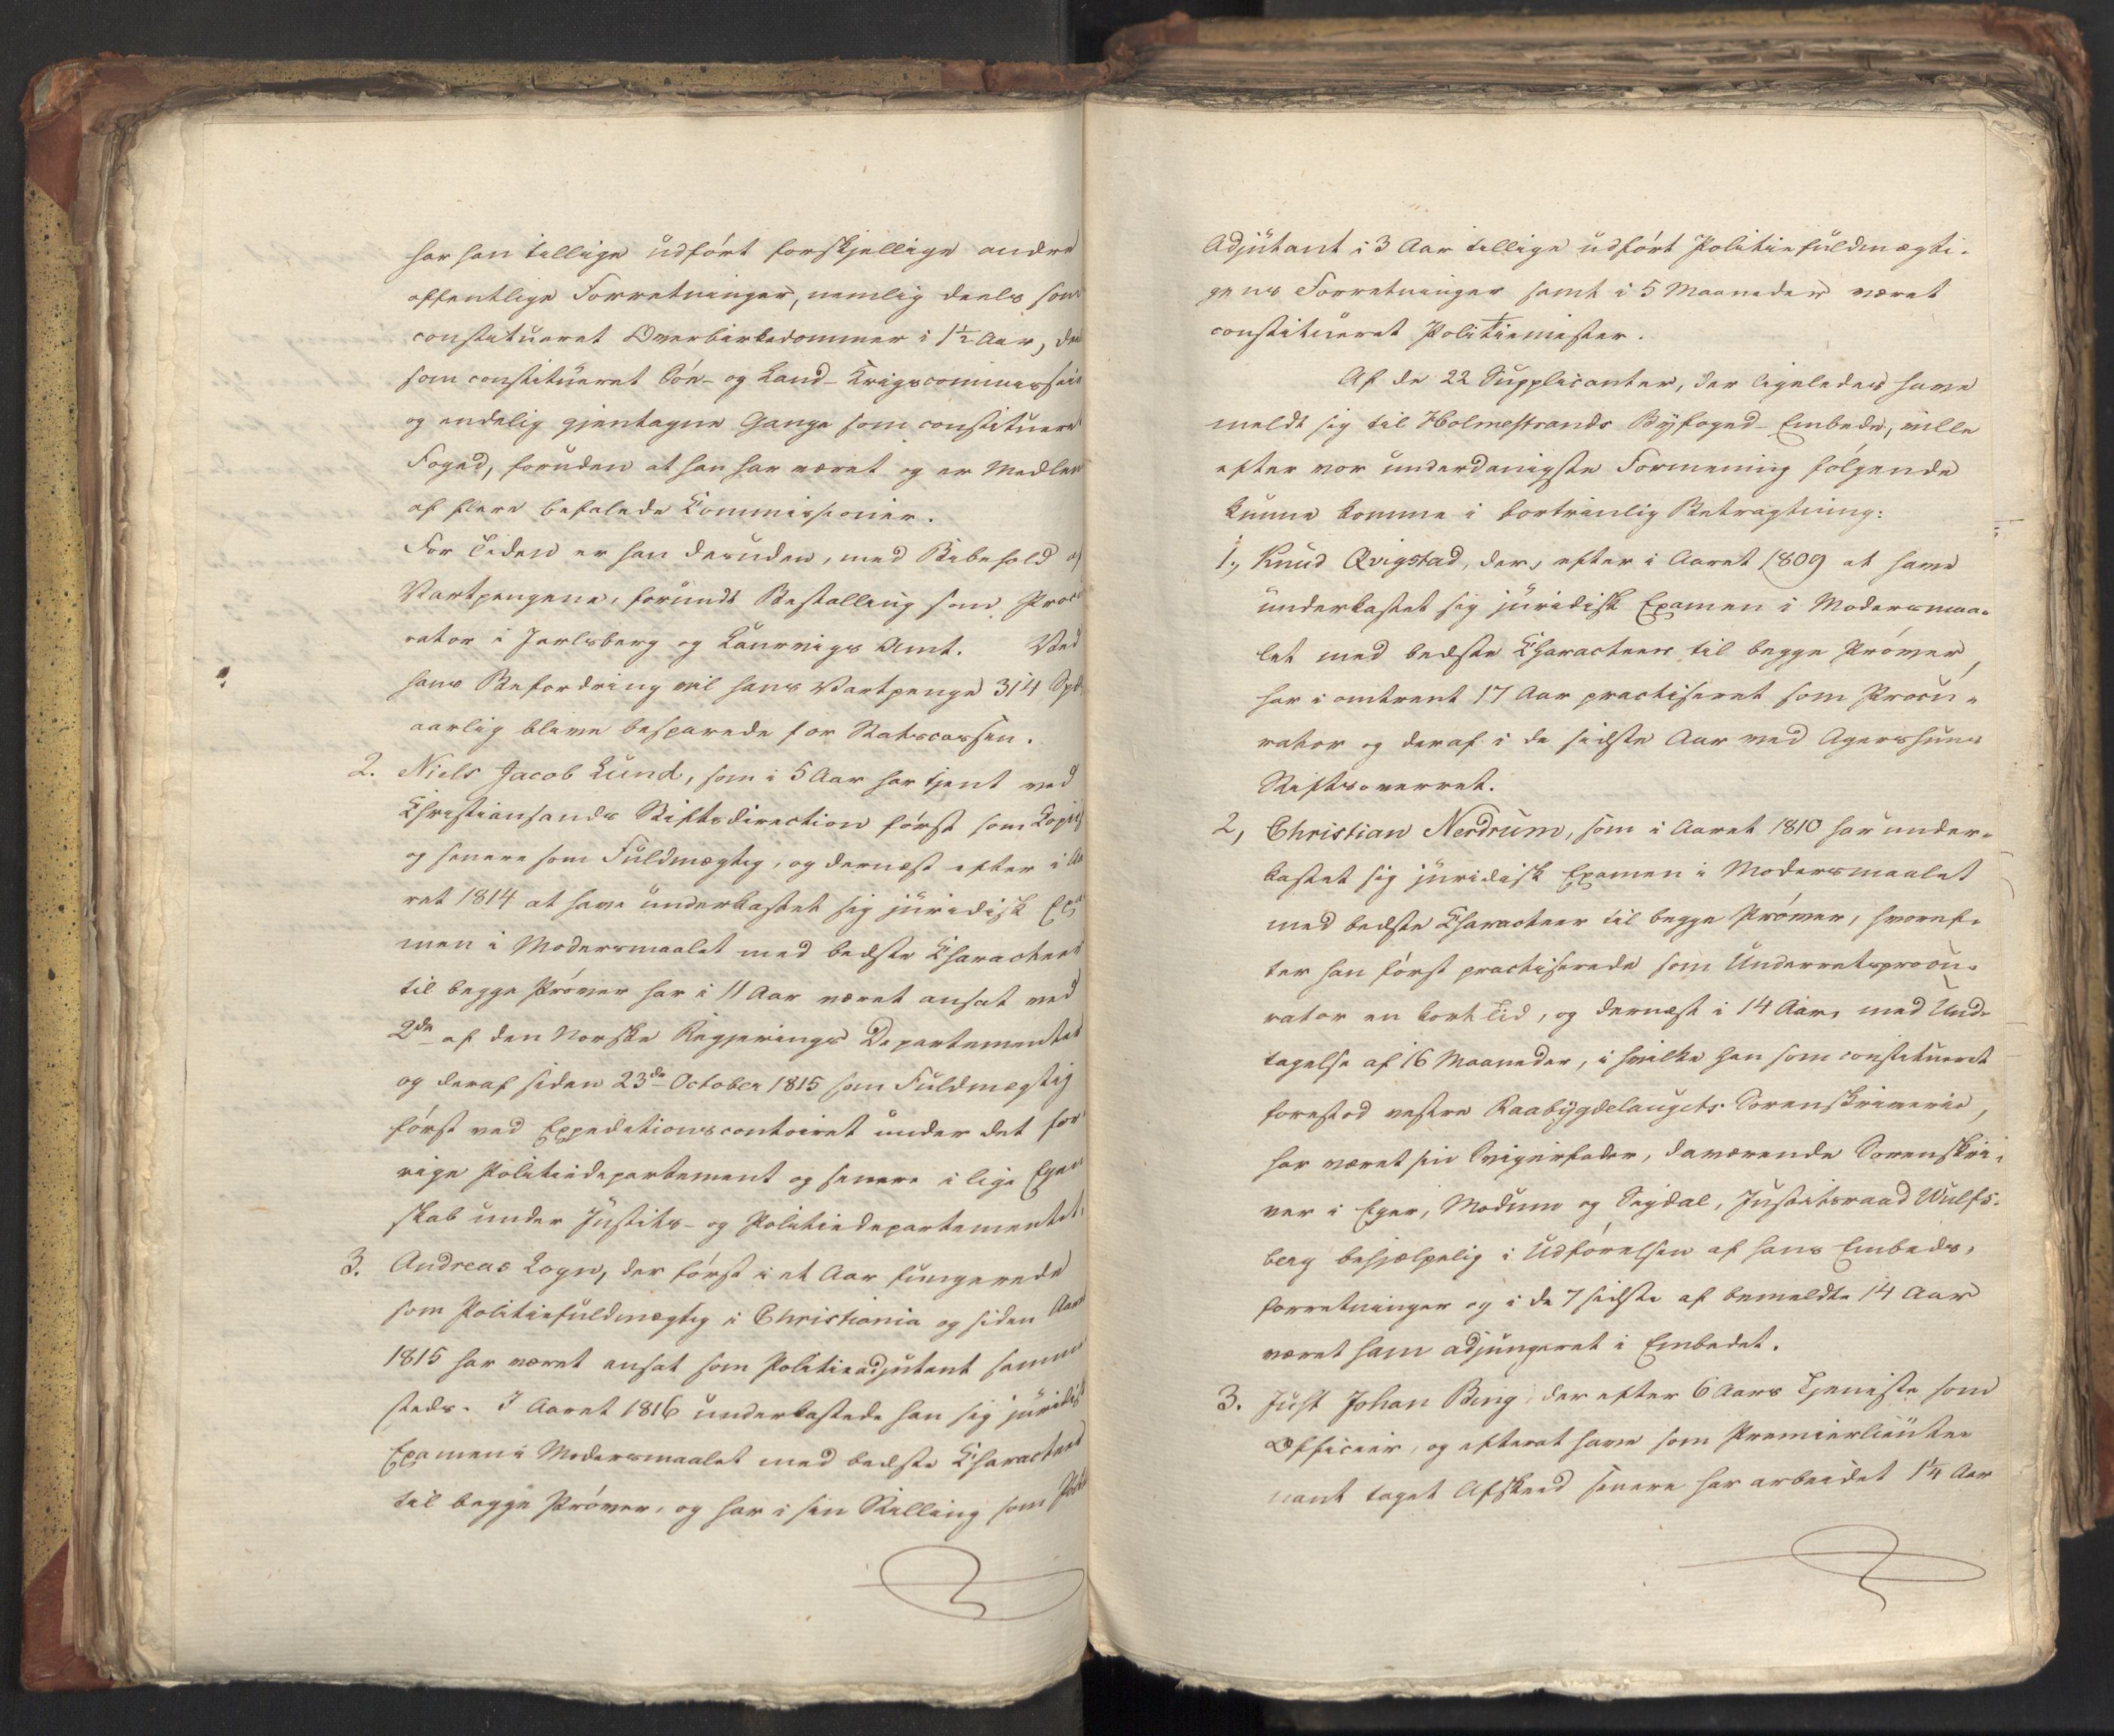 har han tillige udført forskjellige andre
offentlige Forretninger, nemlig deels som
constitueret Overbirkedommer i 1½ Aar, deels
som constitueret Sóe- og Land-Krigscommissair
og endelig gjentagne Gange som constitueret
Foged, foruden at han har været og er Medlem
af flere befalede Commissioner.
For Tiden er han desuden, med Bibehold af
Vartpengene, forundt Bestalling som Procu
rator i Jarlsberg og Laurvigs Amt. Ved
hans Befordring vil hans Vartpenge 314 Spd
aarlig blive besparede for Statscassen.
2. Niels Jacob Lund, som i 5 Aar har tjent ved
Christiansands Stiftsdirection fórst som Copist
og senere som Fuldmægtig, og dernæst efter i Aa
ret 1814 at have underkastet sig juridisk Exa
men i Modersmaalet med bedste Characteer
til begge Próver har i 11 Aar været ansat ved
2de af den Norske Regjerings Departementer
og deraf siden 23de October 1815 som Fuldmægtig
fórst ved Expeditionscontoiret under det for
rige Politiedepartement og senere i lige Egen
skab under Justits- og Politiedepartementet.
3. Andreas Kogn, der fórst i et Aar fungerede
som Politiefuldmægtig i Christiania og siden Aaret
1815 har været ansat som Politieadjutant samme
steds. I Aaret 1816 underkastede han sig juridisk
Examen i Modersmaalet med bedste Characteer
til begge Próver, og har i sin Stilling som Politie
Adjutant i 3 Aar tillige udfórt Politiefuldmægti-
gens Forretninger samt i 5 Maaneder været
constitueret Politiemester.
Af de 22 Supplicanter, der ligeledes have
meldt sig til Holmestrands Byfoged-Embede, ville
efter vor underdanigste Formening fólgende
kunne komme i fortrinlig Betragtning:
1., Knud Qvigstad, der, efter i Aaret 1809 at have
underkastet sig juridisk Examen i Modersmaa-
let med bedste Characteer til begge Próver,
har i omtrent 17 Aar practiseret som Procu-
rator og deraf i de sidste Aar ved Agershuus
Stiftsoverret.
2, Christian Nerdrum, som i Aaret 1810 har under-
kastet sig juridisk Examen i Modersmaalet
med bedste Characteer til begge Próver, hvoref-
ter han fórst practiserede som Underretsprocu-
rator en kort Tid, og dernæst i 14 Aar, med Und-
tagelse af 16 Maaneder, i hvilke han som constitueret
forestod vestre Raabygdelaugets Sorenskriverie,
har været sin Svigerfader, daværende Sorenskri-
ver i Eger, Modum og Sigdal, Justitsraad Wulfs-
berg behjælpelig i Udfórelsen af hans Embeds-
forretninger og i de 7 sidste af bemeldte 14 Aar
været ham adjungeret i Embedet.
3. Just Johan Bing der efter 6 Aars Tjeneste som
Officeer, og efterat have som Premierlieute
nant taget Afskeed senere har arbeidet 1¼ Aar